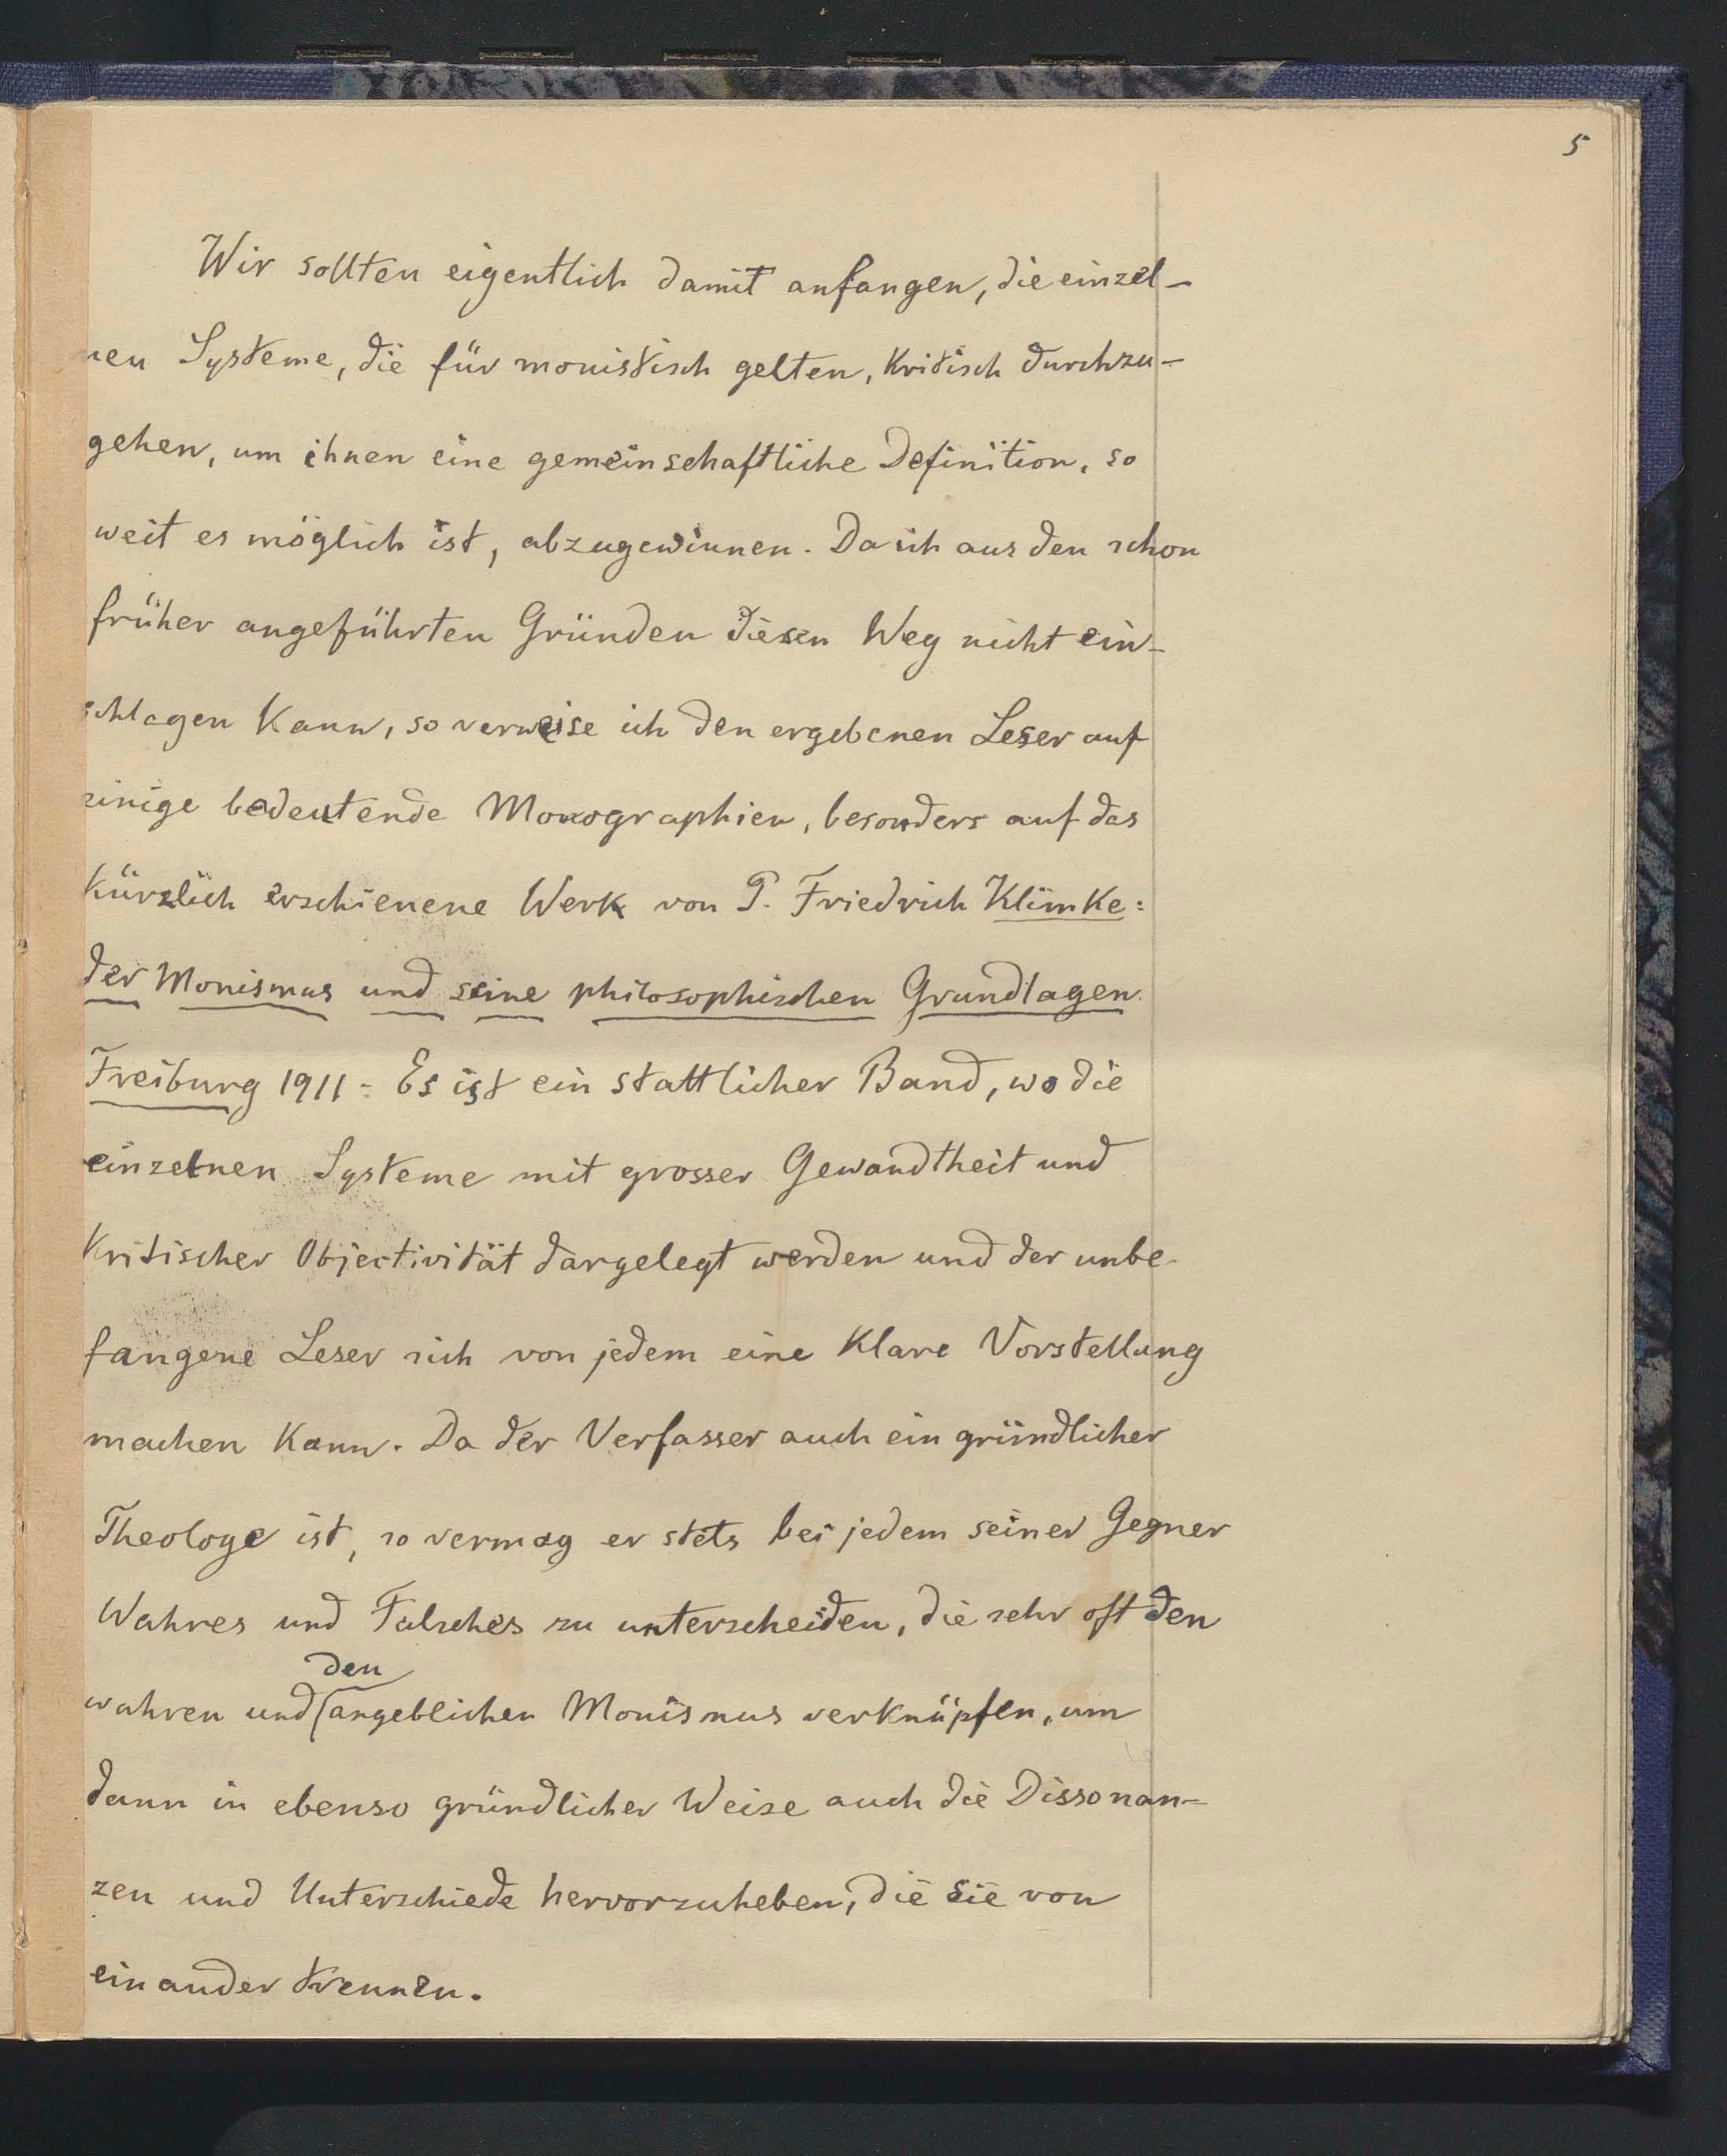 5
Wir sollten eigentlich damit anfangen, die einzel-
nen Systeme, die für monistisch gelten, kritisch durchzu-
gehen, um ihnen eine gemeinschaftliche Definition, so
weit es möglich ist, abzugewinnen. Da ich aus den schon
früher angeführten Gründen diesen Weg nicht ein-
schlagen kann, so verweise ich den ergebenen Leser auf
einige bedeutende Monographien, besonders auf das
kürzlich erschienene Werk von P. Friedrich Klimke:
der Monismus und seine philosophischen Grundlagen.
Freiburg 1911: Es ist ein stattlicher Band, wo die
einzelnen Systeme mit grosser Gewandtheit und
kritischer Objectivität dargelegt werden und der unbe-
fangene Leser sich von jedem eine klare Vorstellung
machen kann. Da der Verfasser auch ein gründlicher
Theologe ist, so vermag er stets bei jedem seiner Gegner
Wahres und Falsches zu unterscheiden, die sehr oft den
den
wahren und angeblichen Monismus verknüpfen, um
dann in ebenso gründlicher Weise auch die Dissonan-
zen und Unterschiede hervorzuheben, die sie von
einander trennen.